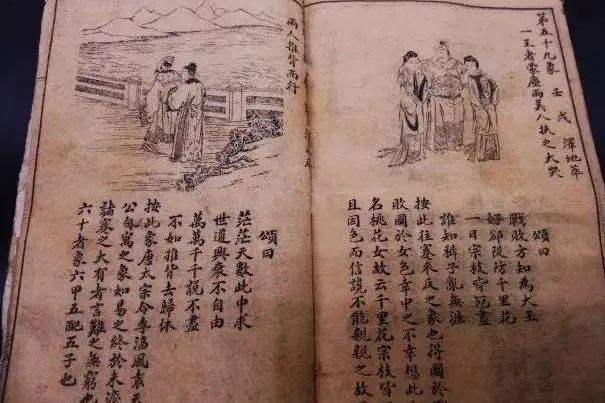 第五十九象 壬戌 澤地萃
一王者蒙塵兩美人扶之大哭
頌曰
戰敗方知為大王
好卻隄防千里花
一日宗枝皆死盡
誰知稗子亂無涯
按此往蹇來反之象也得圖於
敗國於女色幸中之不幸想此
名桃花女故云千里花宗枝皆
且因色而信讒不能親親之故
兩人推背而行
頌曰
茫茫天數此中求
世道興衰不自由
萬萬千千說不盡
不如推背去歸休
按此象唐太宗令李淳風袁天
公自寓之象如易之終於未濟
諸象之大有者言難之無窮也
六十者象六甲五配五子也